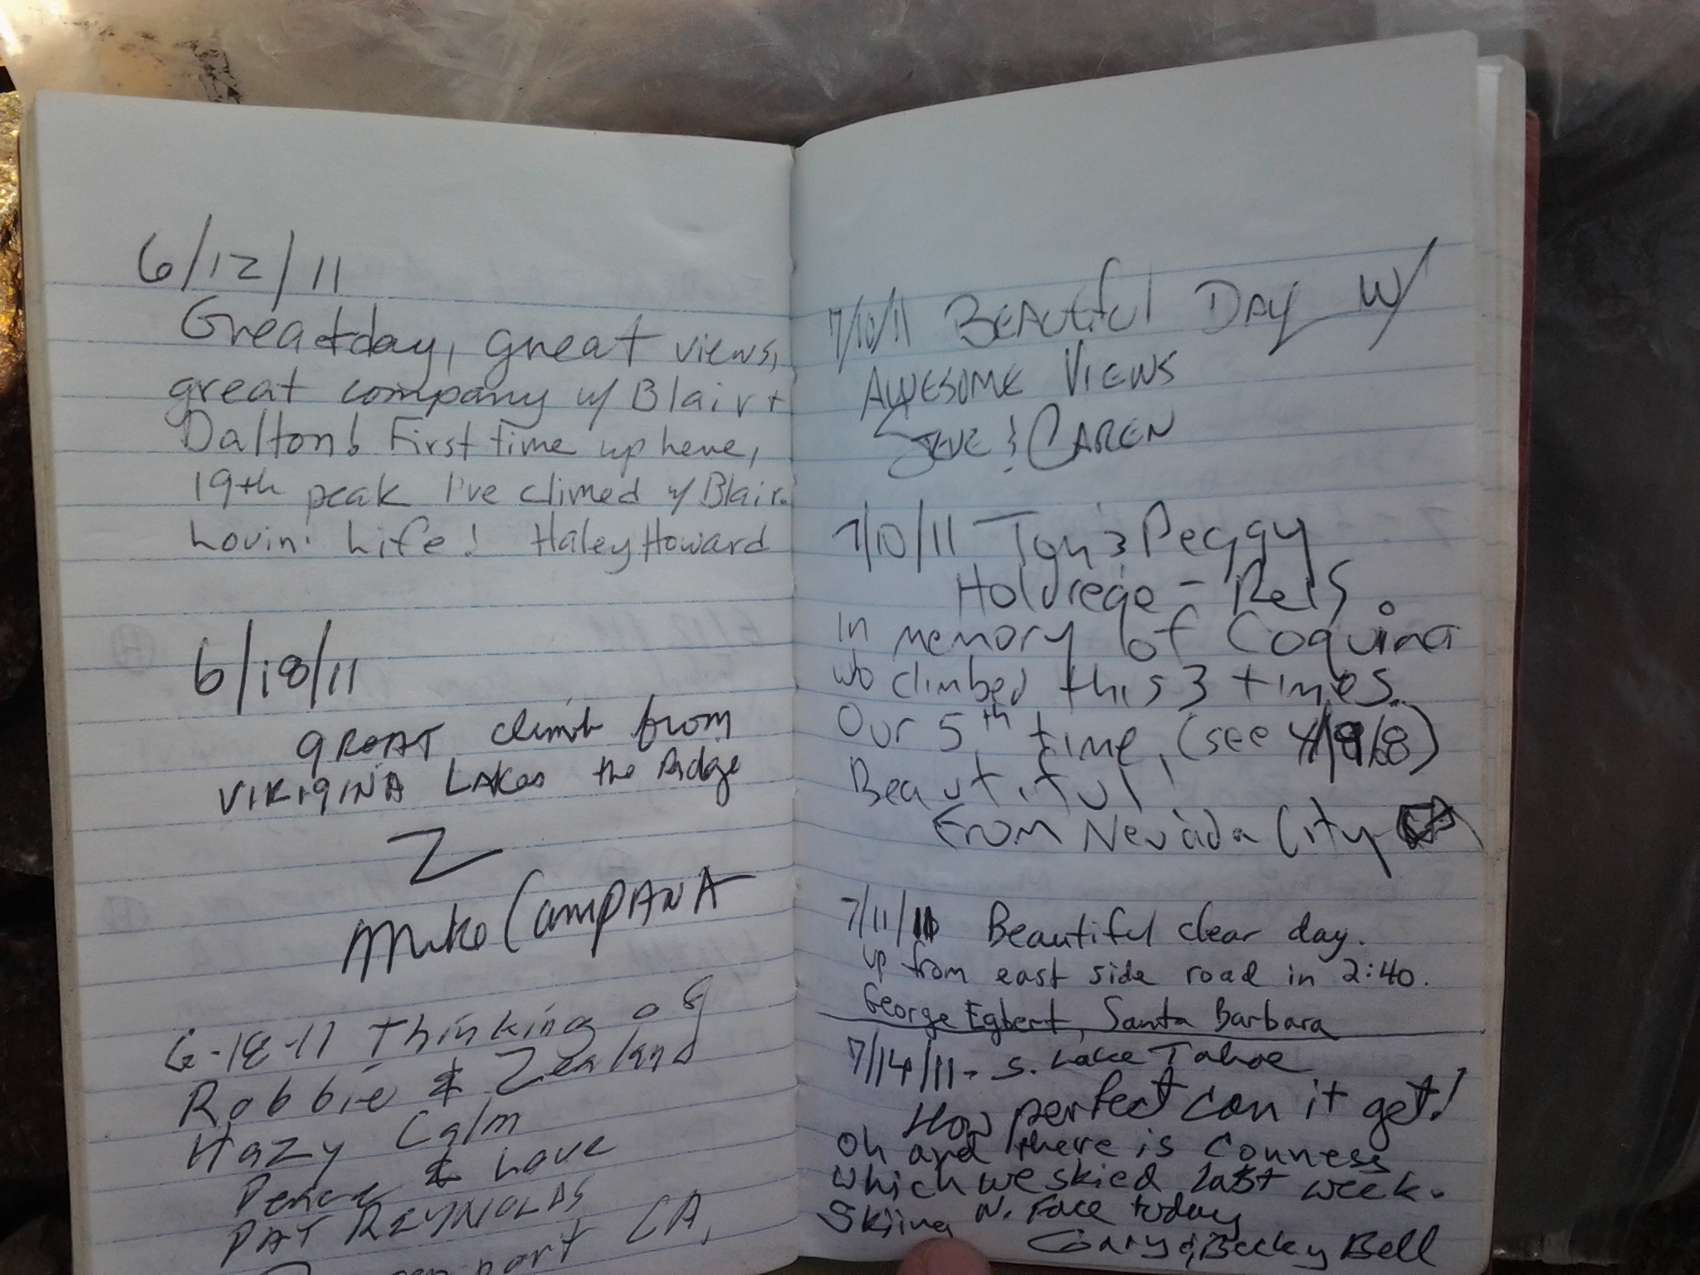 6/12/11
Great day, great views,
great company w/ Blair +
Dalton! First time up here,
19th peak I've climed w/ Blair.
Lovin' Life! Haley Howard
6/18/11
GREAT climb from
VIRIGINA LAKES the Ridge
Z
Mike CAMPANA
6-18-11 Thinking of
Robbie & Zealand
Hazy Calm
Peace & Love
PAT REYNOLDS
port CA,
7/10/11 BEAUTIFUL DAY W/
AWESOME VIEWS
STEVE & CAREN
7/10/11 Tom & Peggy
Holdrege - Rels.
In memory of Coquina
who climbed this 3 times.
Our 5th time, (see
Beautiful!
From Nevada City
7/11/11 Beautiful clear day.
up from east side road in 2:40.
George Egbert, Santa Barbara
7/14/11 - S. Lake Tahoe
How perfect can it get!
Oh and there is Conness
which we skied last week.
Skiing N. Face today
Gary & Becky Bell